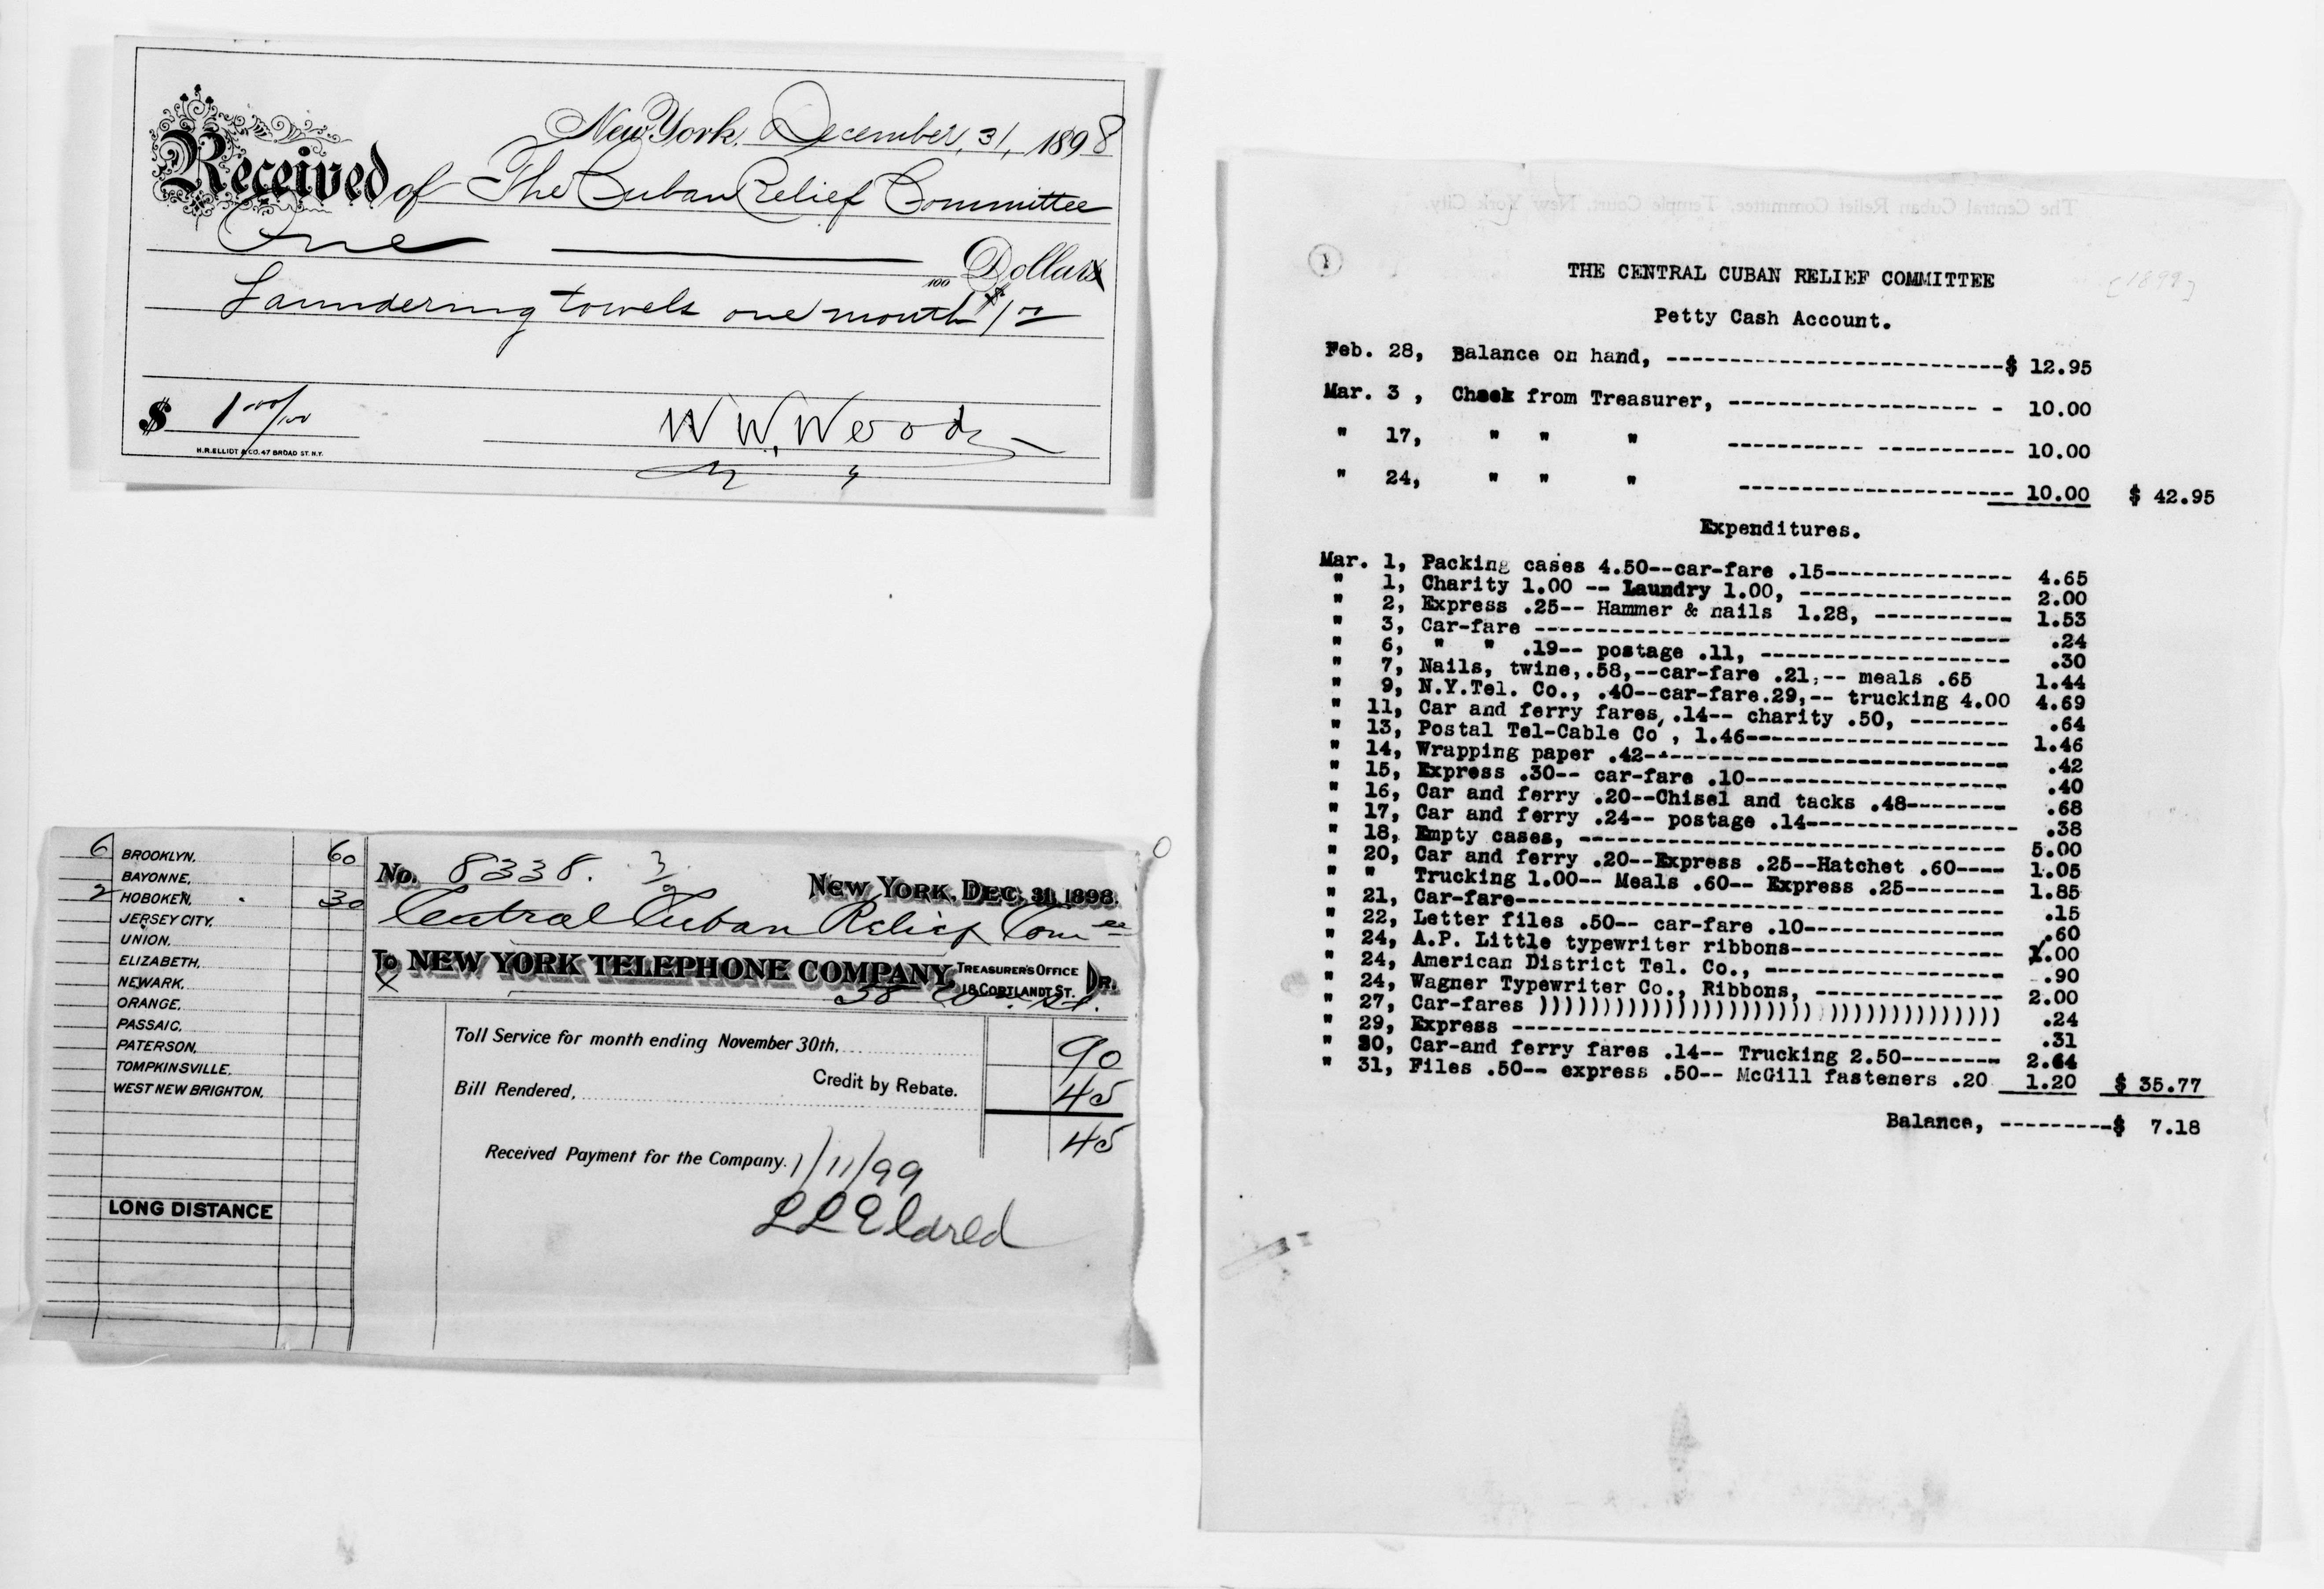 New York, December, 31, 1898
Received of The Cuban Relief Committee
One Dollar
100
Laundering towels one month $1 00
$ 1 00/100
W. W. Woods
H.R. ELLIOT & CO. 47 BROAD ST. N.Y.
6 BROOKLYN, 60
BAYONNE,
2 HOBOKEN, 30
JERSEY CITY,
UNION,
ELIZABETH,
NEWARK,
ORANGE,
PASSAIC,
PATERSON,
TOMPKINSVILLE,
WEST NEW BRIGHTON,
LONG DISTANCE
No. 8338.
NEW YORK, DEC. 31, 1898.
Central Cuban Relief Com ee
To NEW YORK TELEPHONE COMPANY, TREASURER'S OFFICE 18 CORTLANDT ST. DR.
Toll Service for month ending November 30th, 90
Credit by Rebate. 45
Bill Rendered, 45
Received Payment for the Company. 1/11/99
L L Eldred
The Central Cuban Relief Committee, Temple Court, New York City.
1
THE CENTRAL CUBAN RELIEF COMMITTEE
[1899]
Petty Cash Account.
Feb. 28, Balance on hand, --------------------------$ 12.95
Mar. 3 , Check from Treasurer, ------------------- - 10.00
" 17, " " " ---------- ----------- 10.00
" 24, " " " ---------------------- 10.00 $ 42.95
Expenditures.
Mar. 1, Packing cases 4.50--car-fare .15--------------- 4.65
" 1, Charity 1.00 -- Laundry 1.00, ----------------- 2.00
" 2, Express .25-- Hammer & nails 1.28, ----------- 1.53
" 3, Car-fare -------------------------------------- .24
" 6, " " .19-- postage .11, -------------------- .30
" 7, Nails, twine,.58,--car-fare .21,-- meals .65 1.44
" 9, N.Y.Tel. Co., .40--car-fare.29,-- trucking 4.00 4.69
" 11, Car and ferry fares, .14-- charity .50, -------- .64
" 13, Postal Tel-Cable Co , 1.46--------------------- 1.46
" 14, Wrapping paper .42----------------------------- .42
" 15, Express .30-- car-fare .10--------------------- .40
" 16, Car and ferry .20--Chisel and tacks .48-------- .68
" 17, Car and ferry .24-- postage .14----------------- .38
" 18, Empty cases, ---------------------------------- 5.00
" 20, Car and ferry .20--Express .25--Hatchet .60---- 1.05
" " Trucking 1.00-- Meals .60-- Express .25-------- 1.85
" 21, Car-fare--------------------------------------- .15
" 22, Letter files .50-- car-fare .10---------------- .60
" 24, A.P. Little typewriter ribbons----------------- 1.00
" 24, American District Tel. Co., ------------------- .90
" 24, Wagner Typewriter Co., Ribbons, --------------- 2.00
" 27, Car-fares ))))))))))))))))))))) ))))))))))))))) .24
" 29, Express --------------------------------------- .31
" 30, Car-and ferry fares .14-- Trucking 2.50-------- 2.64
" 31, Files .50-- express .50-- McGill fasteners .20 1.20 $ 35.77
Balance, ---------$ 7.18